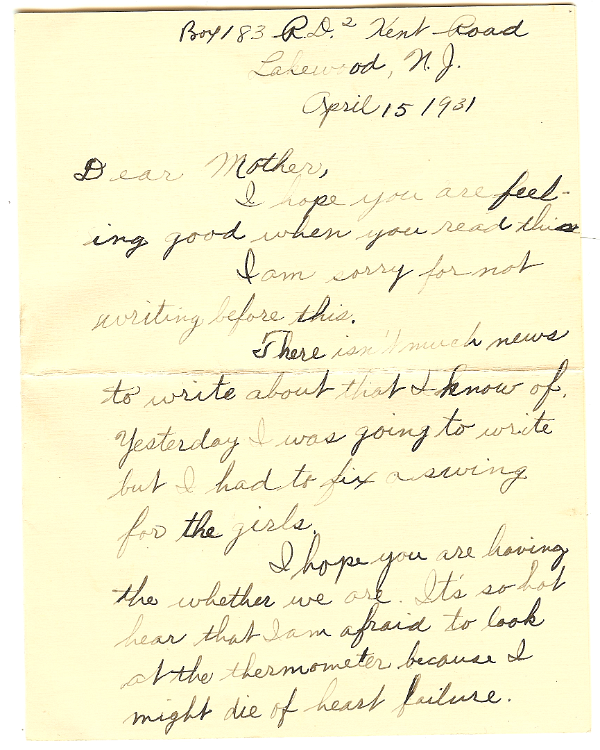 Box 183 R.D.2 Kent Road
Lakewood, N.J.
April 15 1931
Dear Mother,
I hope you are feel-
ing good when you read this
I am sorry for not
writing before this.
There isn't much news
to write about that I know of.
Yesterday I was going to write
but I had to fix a swing
for the girls.
I hope you are having
the whether we are. It's so hot
hear that I am afraid to look
at the thermometer because I
might die of heart failure.